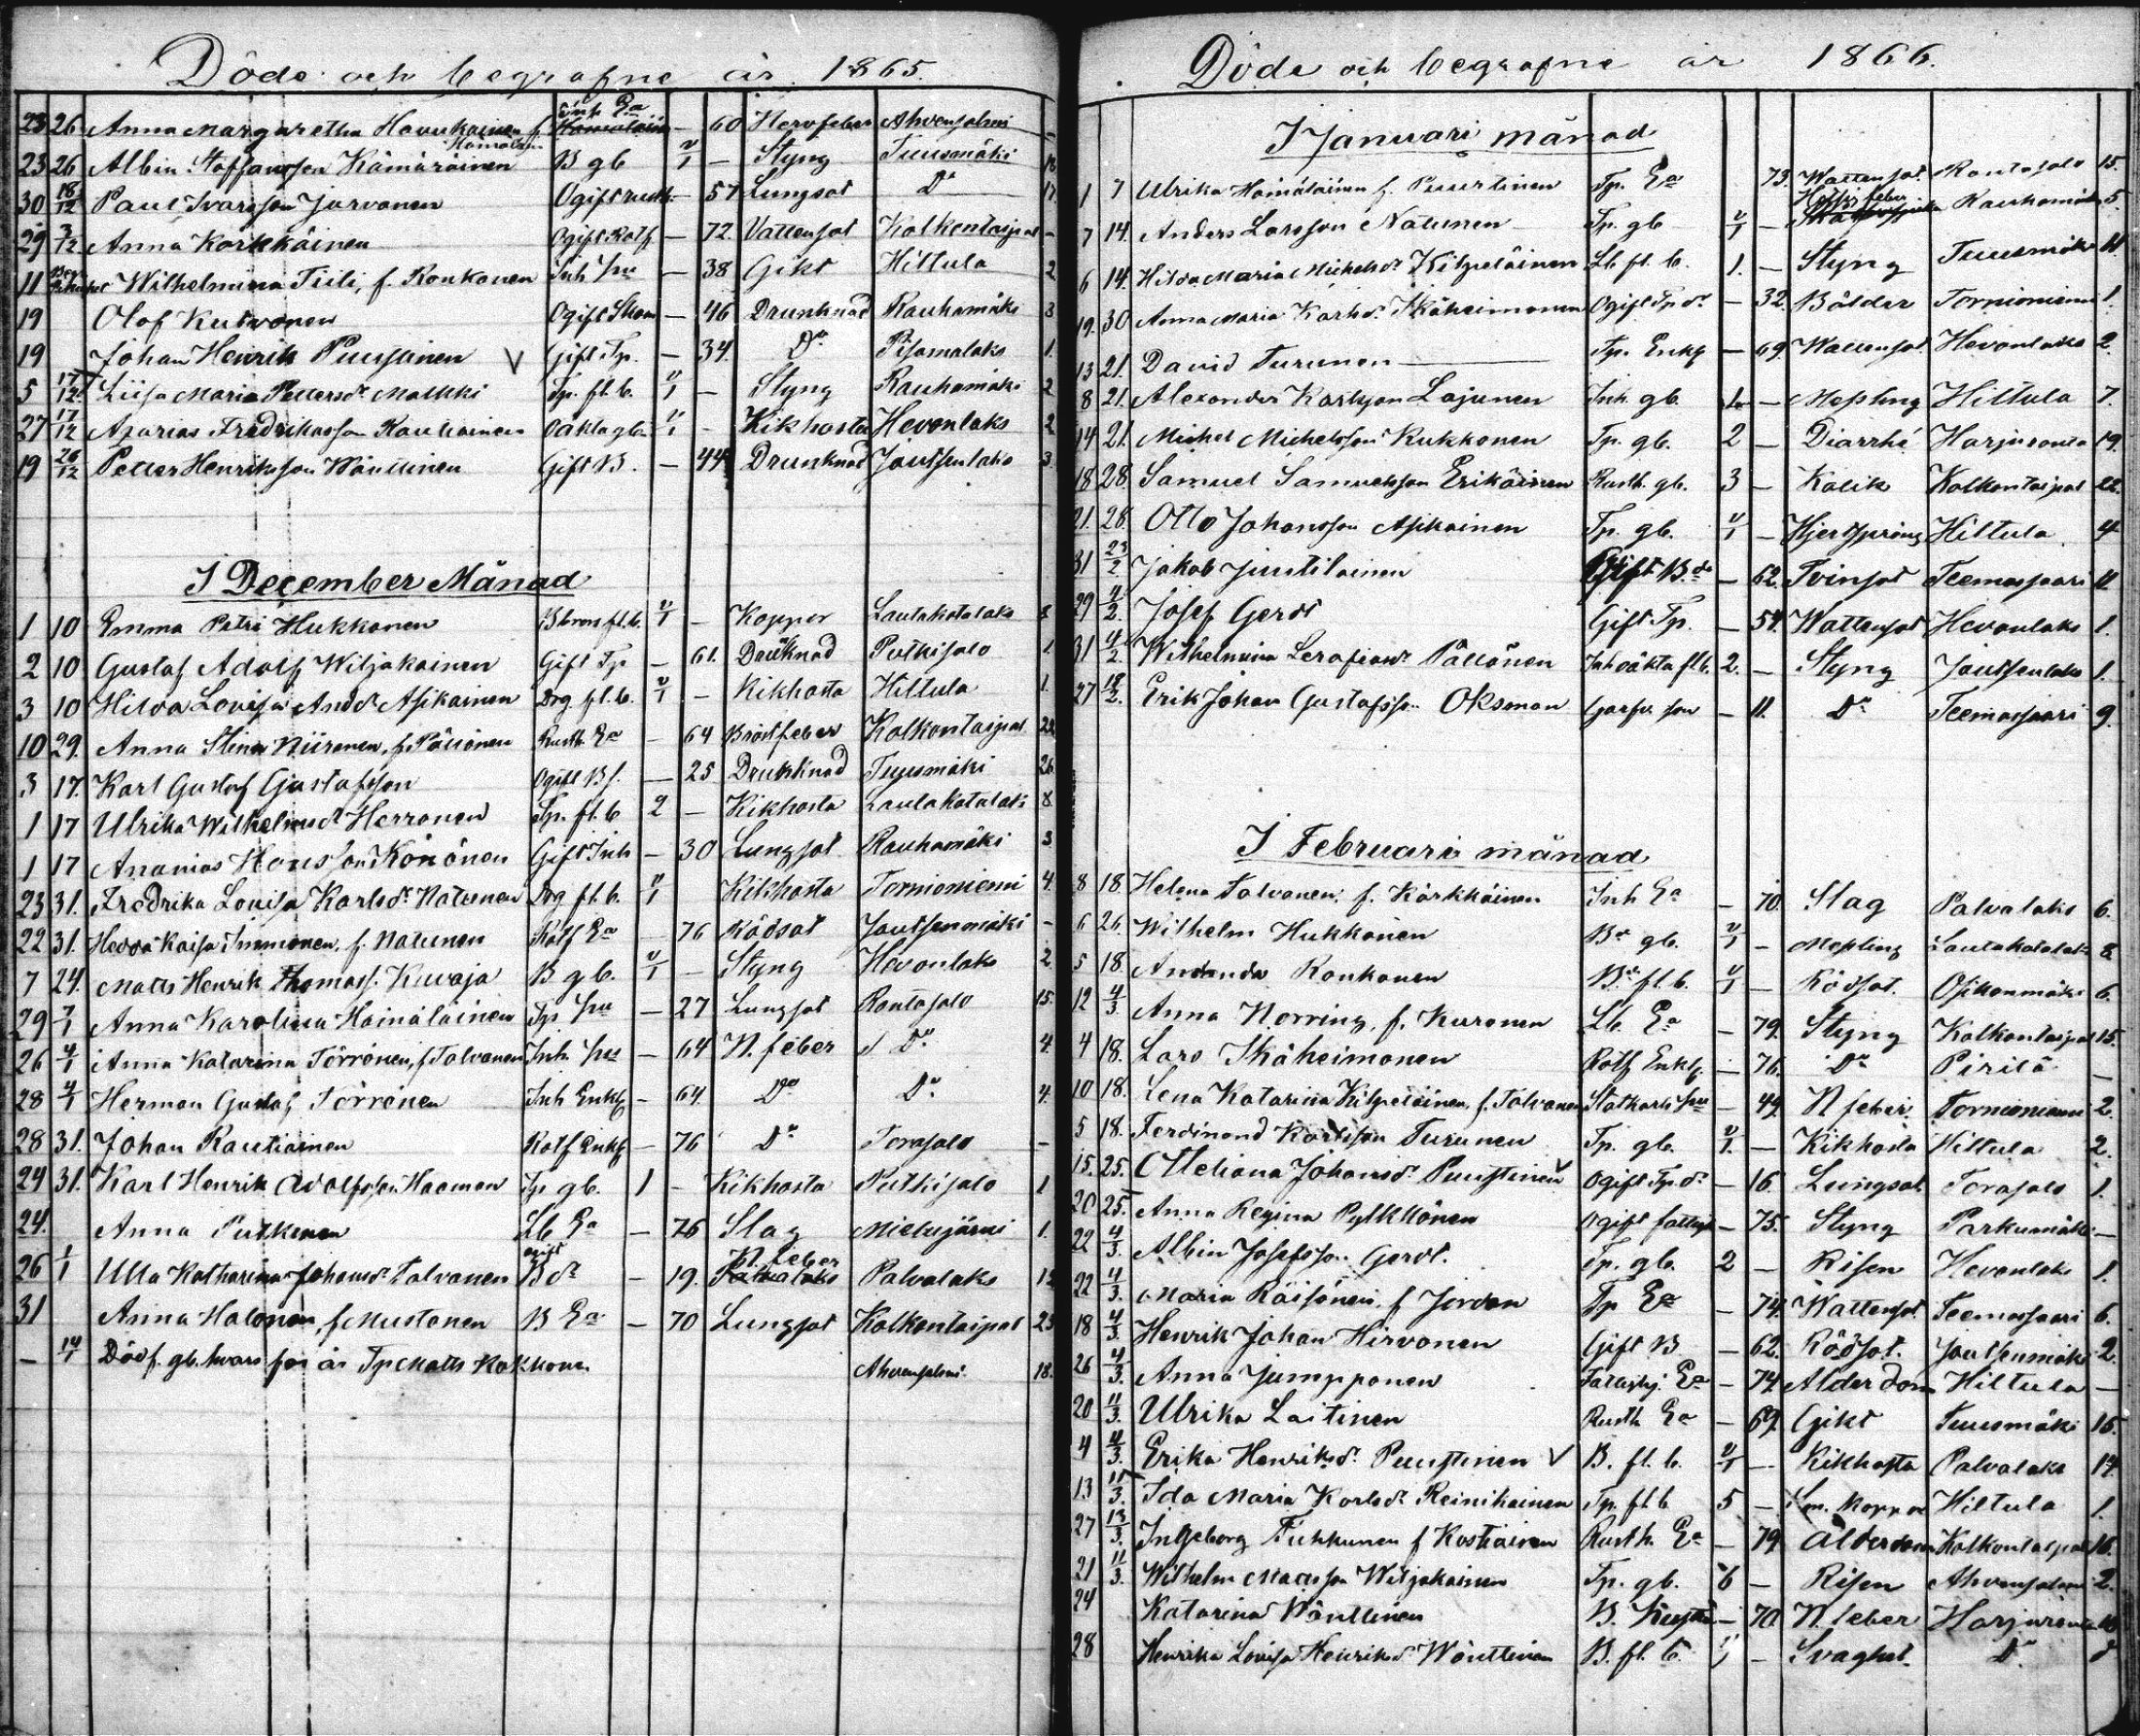 Döde och begrafne år 1865.
23 26 Anna Margaretha Havukainen f. Hämäläin Inh Ea — 60 Nervfeber Ahvensalmi —
23 26 Albin Staffansson Kämäräinen B gb u/1 — Styng Tuusmäki
30 18/12 Paul Ivarsson Jarvonen Ogift rusth — 57 Lungsot Do 17
29 3/12 Anna Karkkäinen Ogift Rotf — 72 Vattensot Kolkontaipal —
11 Wilhelmina Tiili, f. Ronkonen Inh hu — 38 Gikt Hiltula 2
19 Olof Kutvonen Ogift — 46 Drunknad Rauhamäki 3
19 Johan Henrik Puustinen V Gift Tp. — 34 Do Pisamalaks 1.
5 17/12 Liisa Maria Pettersdr Malkki Tp. fl. b. u/1 — Styng Rauhamäki 2
27 17/12 Asarias Fredriksson Rautiainen Oäkta gb. u/1 - Kikhosta Hevonlaks 2
19 26/12 Petter Henriksson Wänttinen Gift B. — 44 Drunknad Joutsenlaks 3.
I December Månad
1 10 Emma Petri Hukkanen fl. b. u/1 — Koppor Lautakotalaks 8
2 10 Gustaf Adolf Wiljakainen Gift Tp — 61. Drunknad Putkisalo 1
3 10 Hilda Lovisa Andd. Asikainen Drg fl. b. u/1 — Kikhosta Hiltula 1.
10 29. Anna Stina Niiranen, f. Pällönen Rusth Ea — 64 Bröstfeber Kolkontaipal 22
3 17. Karl Gustaf Gustafsson Ogift B f. — 25 Drunknad Tuusmäki 26
1 17 Ulrika Wilhelmsdr Herronen Tp. fl. b 2 — Kikhosta Lautakotalaks 8
1 17 Ananias Hansson Könönen Gift Inh — 30 Lungsot Rauhamäki 3
23 31. Fredrika Lovisa Karlsdr Natunen Drg fl. b. u/1 Kikhosta Tornioniemi 4.
22 31. Hedda Kaisa Immonen, f. Natunen Rotf Ea — 76 Rödsot Joutsenmäki -
7 24. Matts Henrik Thomass. Kuvaja B gb. u/1 — Styng Hevonlaks 2
29 7/1 Anna Karolina Hämäläinen Tp hu — 27 Lungsot Rantasalo 15.
26 4/1 Anna Katarina Törrönen, f Talvanen Inh. hu — 64 N. feber Do 4.
28 4/1 Herman Gustaf Törrönen Inh Enkg — 64. Do Do 4.
28 31. Johan Rautiainen Rotf Enkg — 76 Do Torasalo —
24 31. Karl Henrik Adolfsson Haaman Tp gb. 1 - Kikhosta Putkisalo 1
24. Anna Putkonen Lb Ea — 76 Slag Mielusjärvi 1.
26 1/1 Ulla Katharina Johansdr Talvanen ogift B dr — 19. N. feber Palvalaks
31 Anna Halonen, f Mustonen B Ea — 70 Lungsot Kolkontaipal 23
— 14/1 Dödf. gb. hvars far är Tp Matts Kokkonen Ahvensalmi. 18.
Döde och begrafne år 1866.
I Januari månad
1 7 Ulrika Hämäläinen f. Puustinen Tp. Ea 73. Wattensot. Rantasalo 15.
7 14. Anders Larsson Natunen Tp. gb u/1 — Rauhamäki 5.
6 14. Hilda Maria Michelsdr Kilpeläinen Lb fl. b. 1. — Styng Tuusmäki 11.
19. 30 Anna Maria Karlsdr Ikäheimonen Ogift Tp dr — 32. Bölder Tornioniemi 1.
13 21. David Turunen Tp. Enkg — 69. Wattensot Hevonlaks 2.
8 21. Alexander Karlsson Lajunen Inh. gb. 1. — Messling Hiltula 7.
14 21. Michel Michelsson Kukkonen Tp. gb. 2 — Diarrhé Harjuranta 19.
18 28. Samuel Samuelsson Erikäinen Rusth. gb. 3 — Kolik Kolkontaipal 22.
21. 28. Otto Johansson Asikainen Tp. gb. u/1 — Hjertspring Hiltula 4
31 23/2 Jakob Juutilainen Gift B. — 62. Tvinsot Teemassaari 11
29 4/2. Josef Gerdt Gift Tp. — 54. Wattensot Hevonlaks 1.
31 4/2. Wilhelmina Serafiasdr Pällönen Inh oäkta fl. b. 2. — Styng Joutsenlaks 1.
27 18/2. Erik Johan Gustafsson Oksman Garfv. son — 11. Do Teemassaari 9.
I Februari månad
8 18 Helena Talvanen. f. Kärkkäinen Inh Ea — 70. Slag Palvalaks 6.
6 26. Wilhelm Hukkanen Br gb. u/1 — Messling Lautakotalaks 8.
5 18. Amanda Ronkonen B. fl. b. u/1 — Rödsot. Osikonmäki 6.
12 4/3 Anna Norring, f. Kuronen Lb. Ea — 79. Styng Kolkontaipal 15.
4 18. Lars Ikäheimonen Rotf Enkg. — 76. Do Pirilä —
10 18. Lena Katarina Kilpeläinen, f. Talvanen Statkarls hu — 49. N feber Tornioniemi 2.
5 18. Ferdinand Karlsson Turunen Tp. gb. u/1. — Kikhosta Hiltula 2.
15. 25. Otteliana Johansdr Puustinen V Ogift Tp. dr — 16. Lungsot Torasalo 1.
20 25. Anna Regina Pylkkönen Ogift fattigh — 75. Styng Parkumäki —
22 4/3. Albin Josefsson Gerdt. Tp. gb. 2 — Risen Hevonlaks 1.
22 4/3. Maria Räisänen, f Jordan Tp Ea — 74. Wattensot. Teemassaari 6.
18 4/3. Henrik Johan Hirvonen Gift B — 62. Rödsot. Joutsenmäki 2.
26 4/3. Anna Jumpponen Fattighj. Ea — 74. Ålderdom Hiltula —
20 11/3. Ulrika Laitinen Rusth Ea — 69. Gikt Tuusmäki 15.
4 4/3. Erika Henriksdr Puustinen V B. fl. b. u/1 — Kikhosta Palvalaks 14.
13 11/3. Ida Maria Karlsdr Reinikainen Tp. fl. b 5 — Hiltula 1.
27 13/3. Ingeborg Tiukkunen f Kostiainen Rusth. Ea — 79 Ålderdom Kolkontaipal 16.
21 11/3. Wilhelm Matsson Wiljakainen Tp. gb. 6 — Risen Ahvensalmi 2.
24 Katarina Wänttinen B. — 70. N. feber Harjuranta
28 Henrika Lovisa Henriksdr Wänttinen B. fl. b. — Svaghet Do